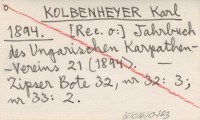 KOLBENHEYER Karl
1894. [Rec. o:] Jahrbuch
des Ungarischen Karpathen-
-Vereins 21 (1894). —
Zipser Bote 32, nr 32: 3;
nr 33: 2.